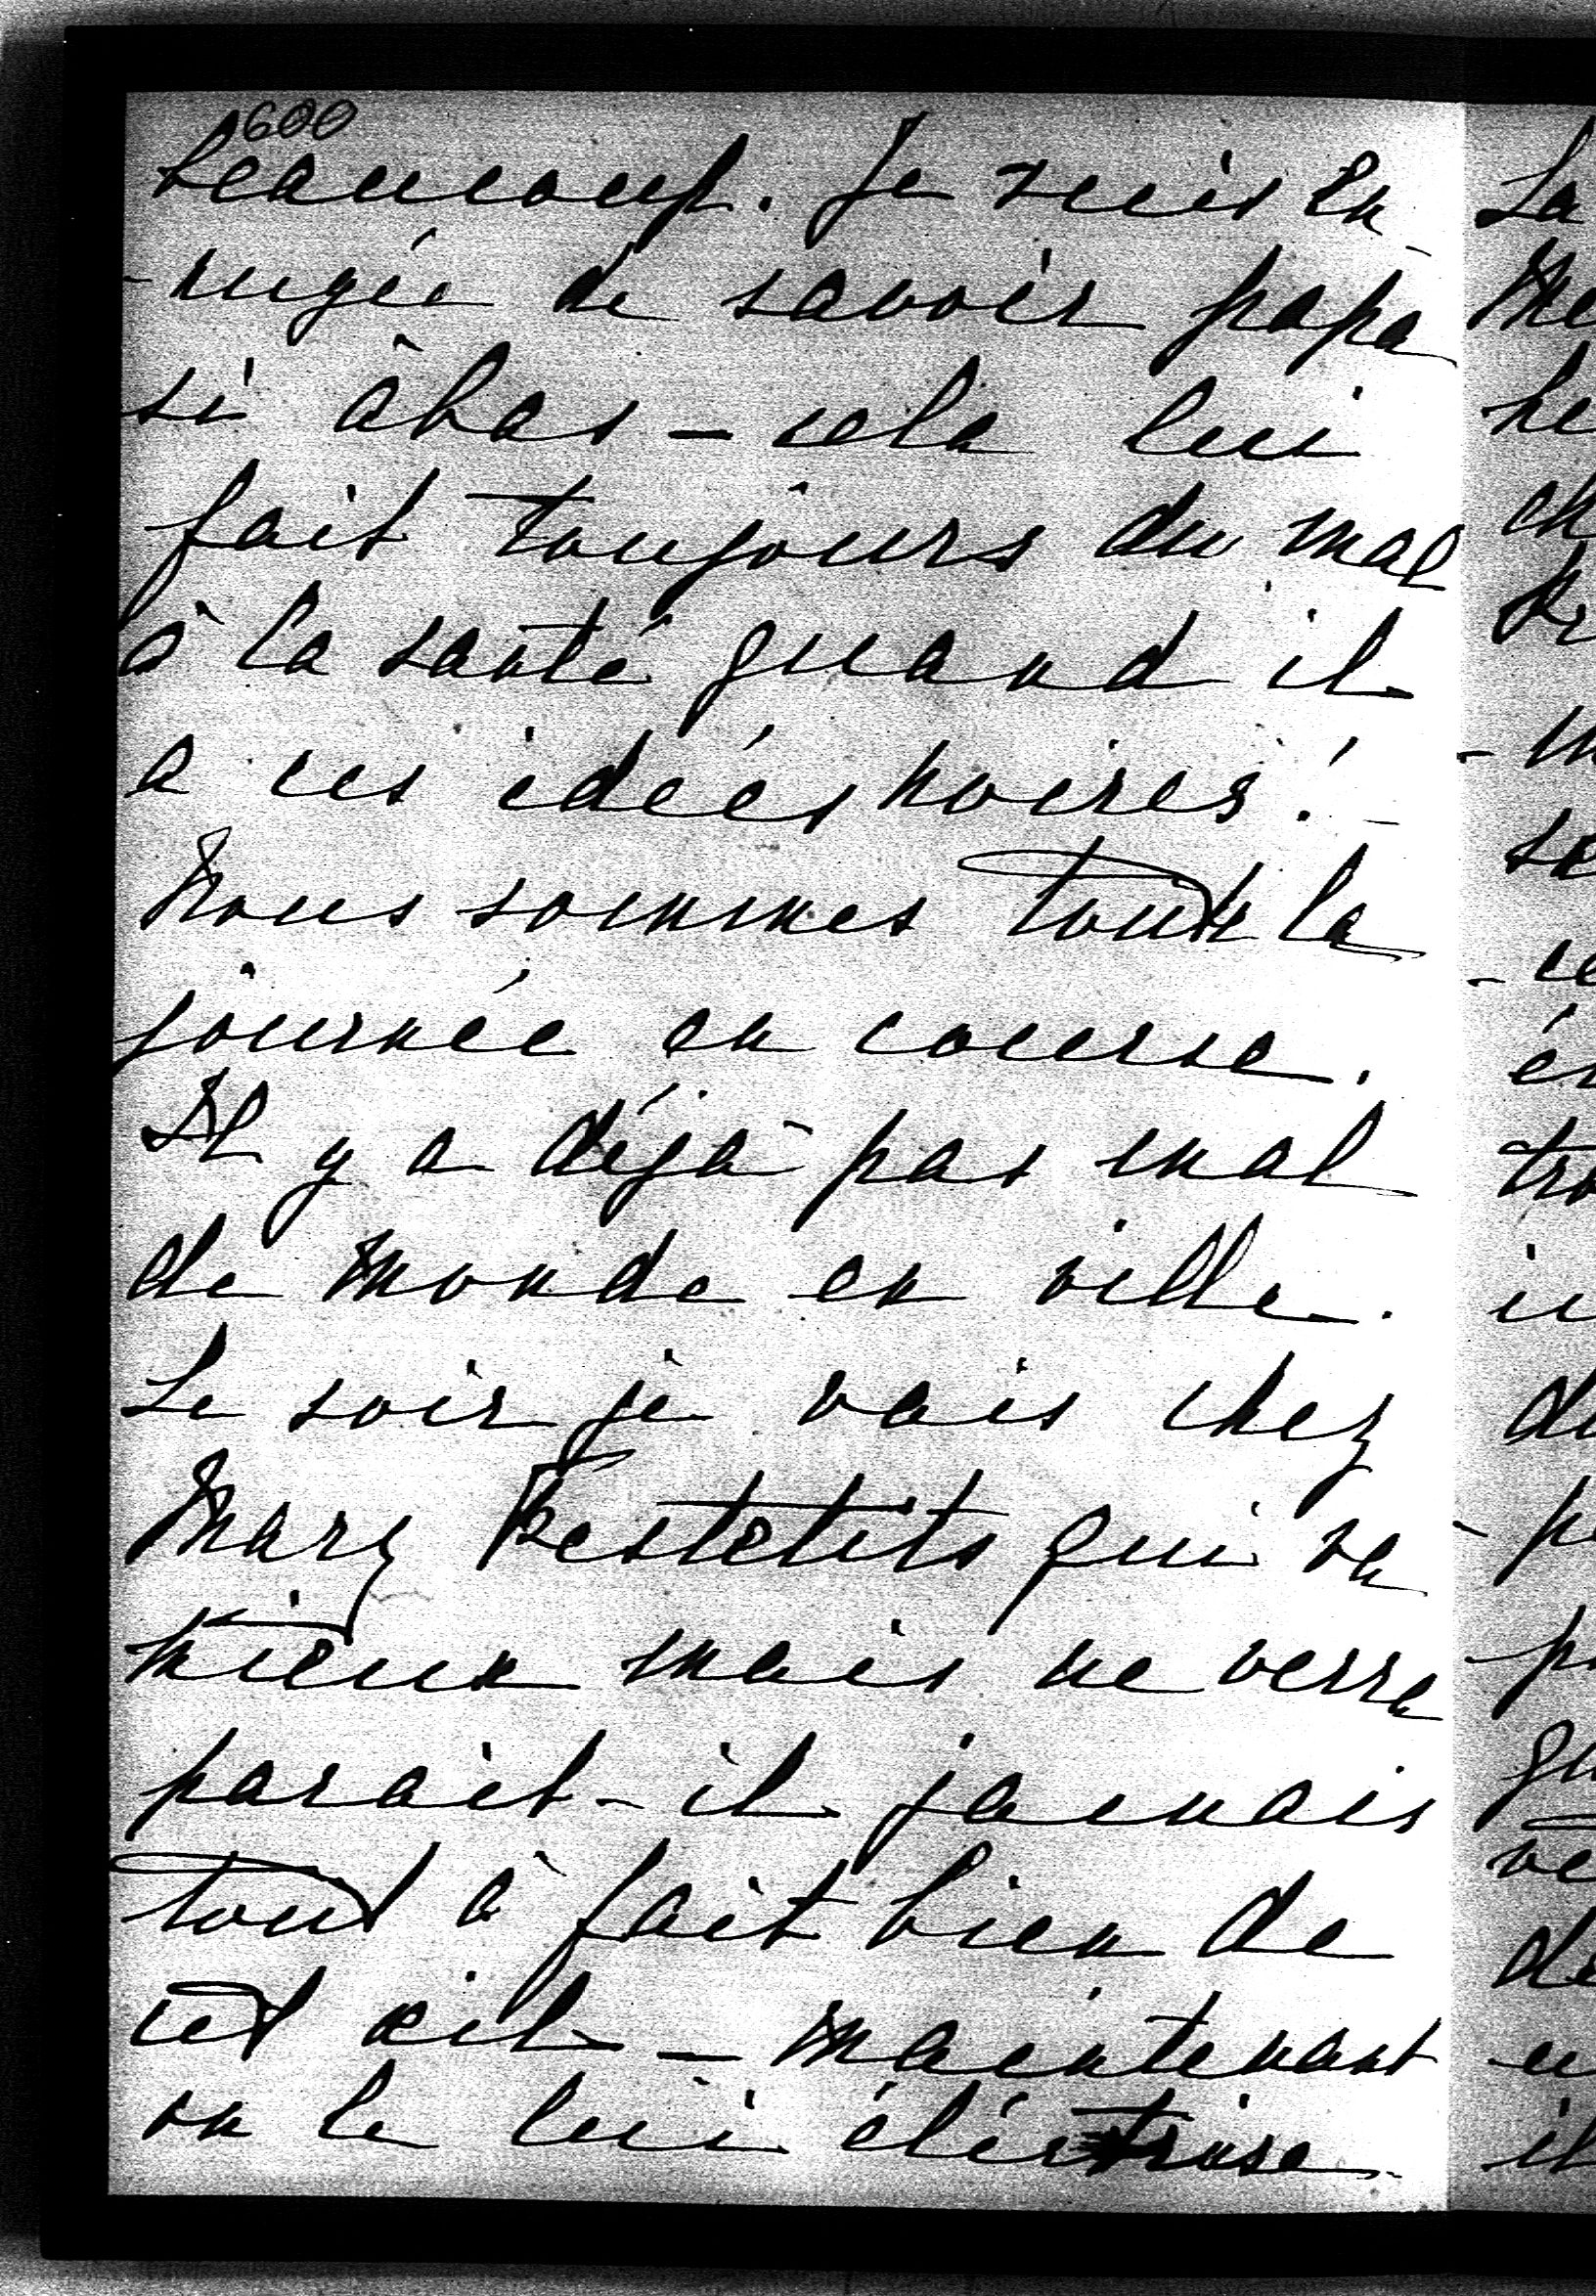 600
beaucoup. Je suis en-
-nuyée de savoir papa
si à bas – cela lui
fait toujours du mal
à la santé quand il
a ces idées noires! –
Nous sommes toute la
journée en course.
Il y a déjà pas mal
de monde en ville.
Le soir je vais chez
Mary qui va
mieux mais ne verra
parait-il jamais
tout à fait bien de
cet œil – maintenant
on le lui éléctrise